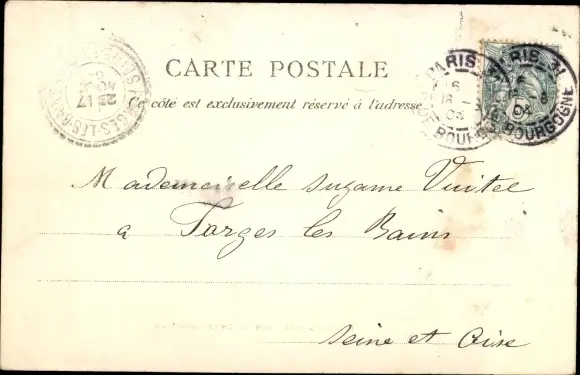 CARTE POSTALE
Ce côté est exclusivement réservé à l'adresse
PARIS
BOURG
PARIS 31
BOURGOGNE
04
Mademoiselle Suzanne Vuitel
a Forges les Bains
Seine et Oise